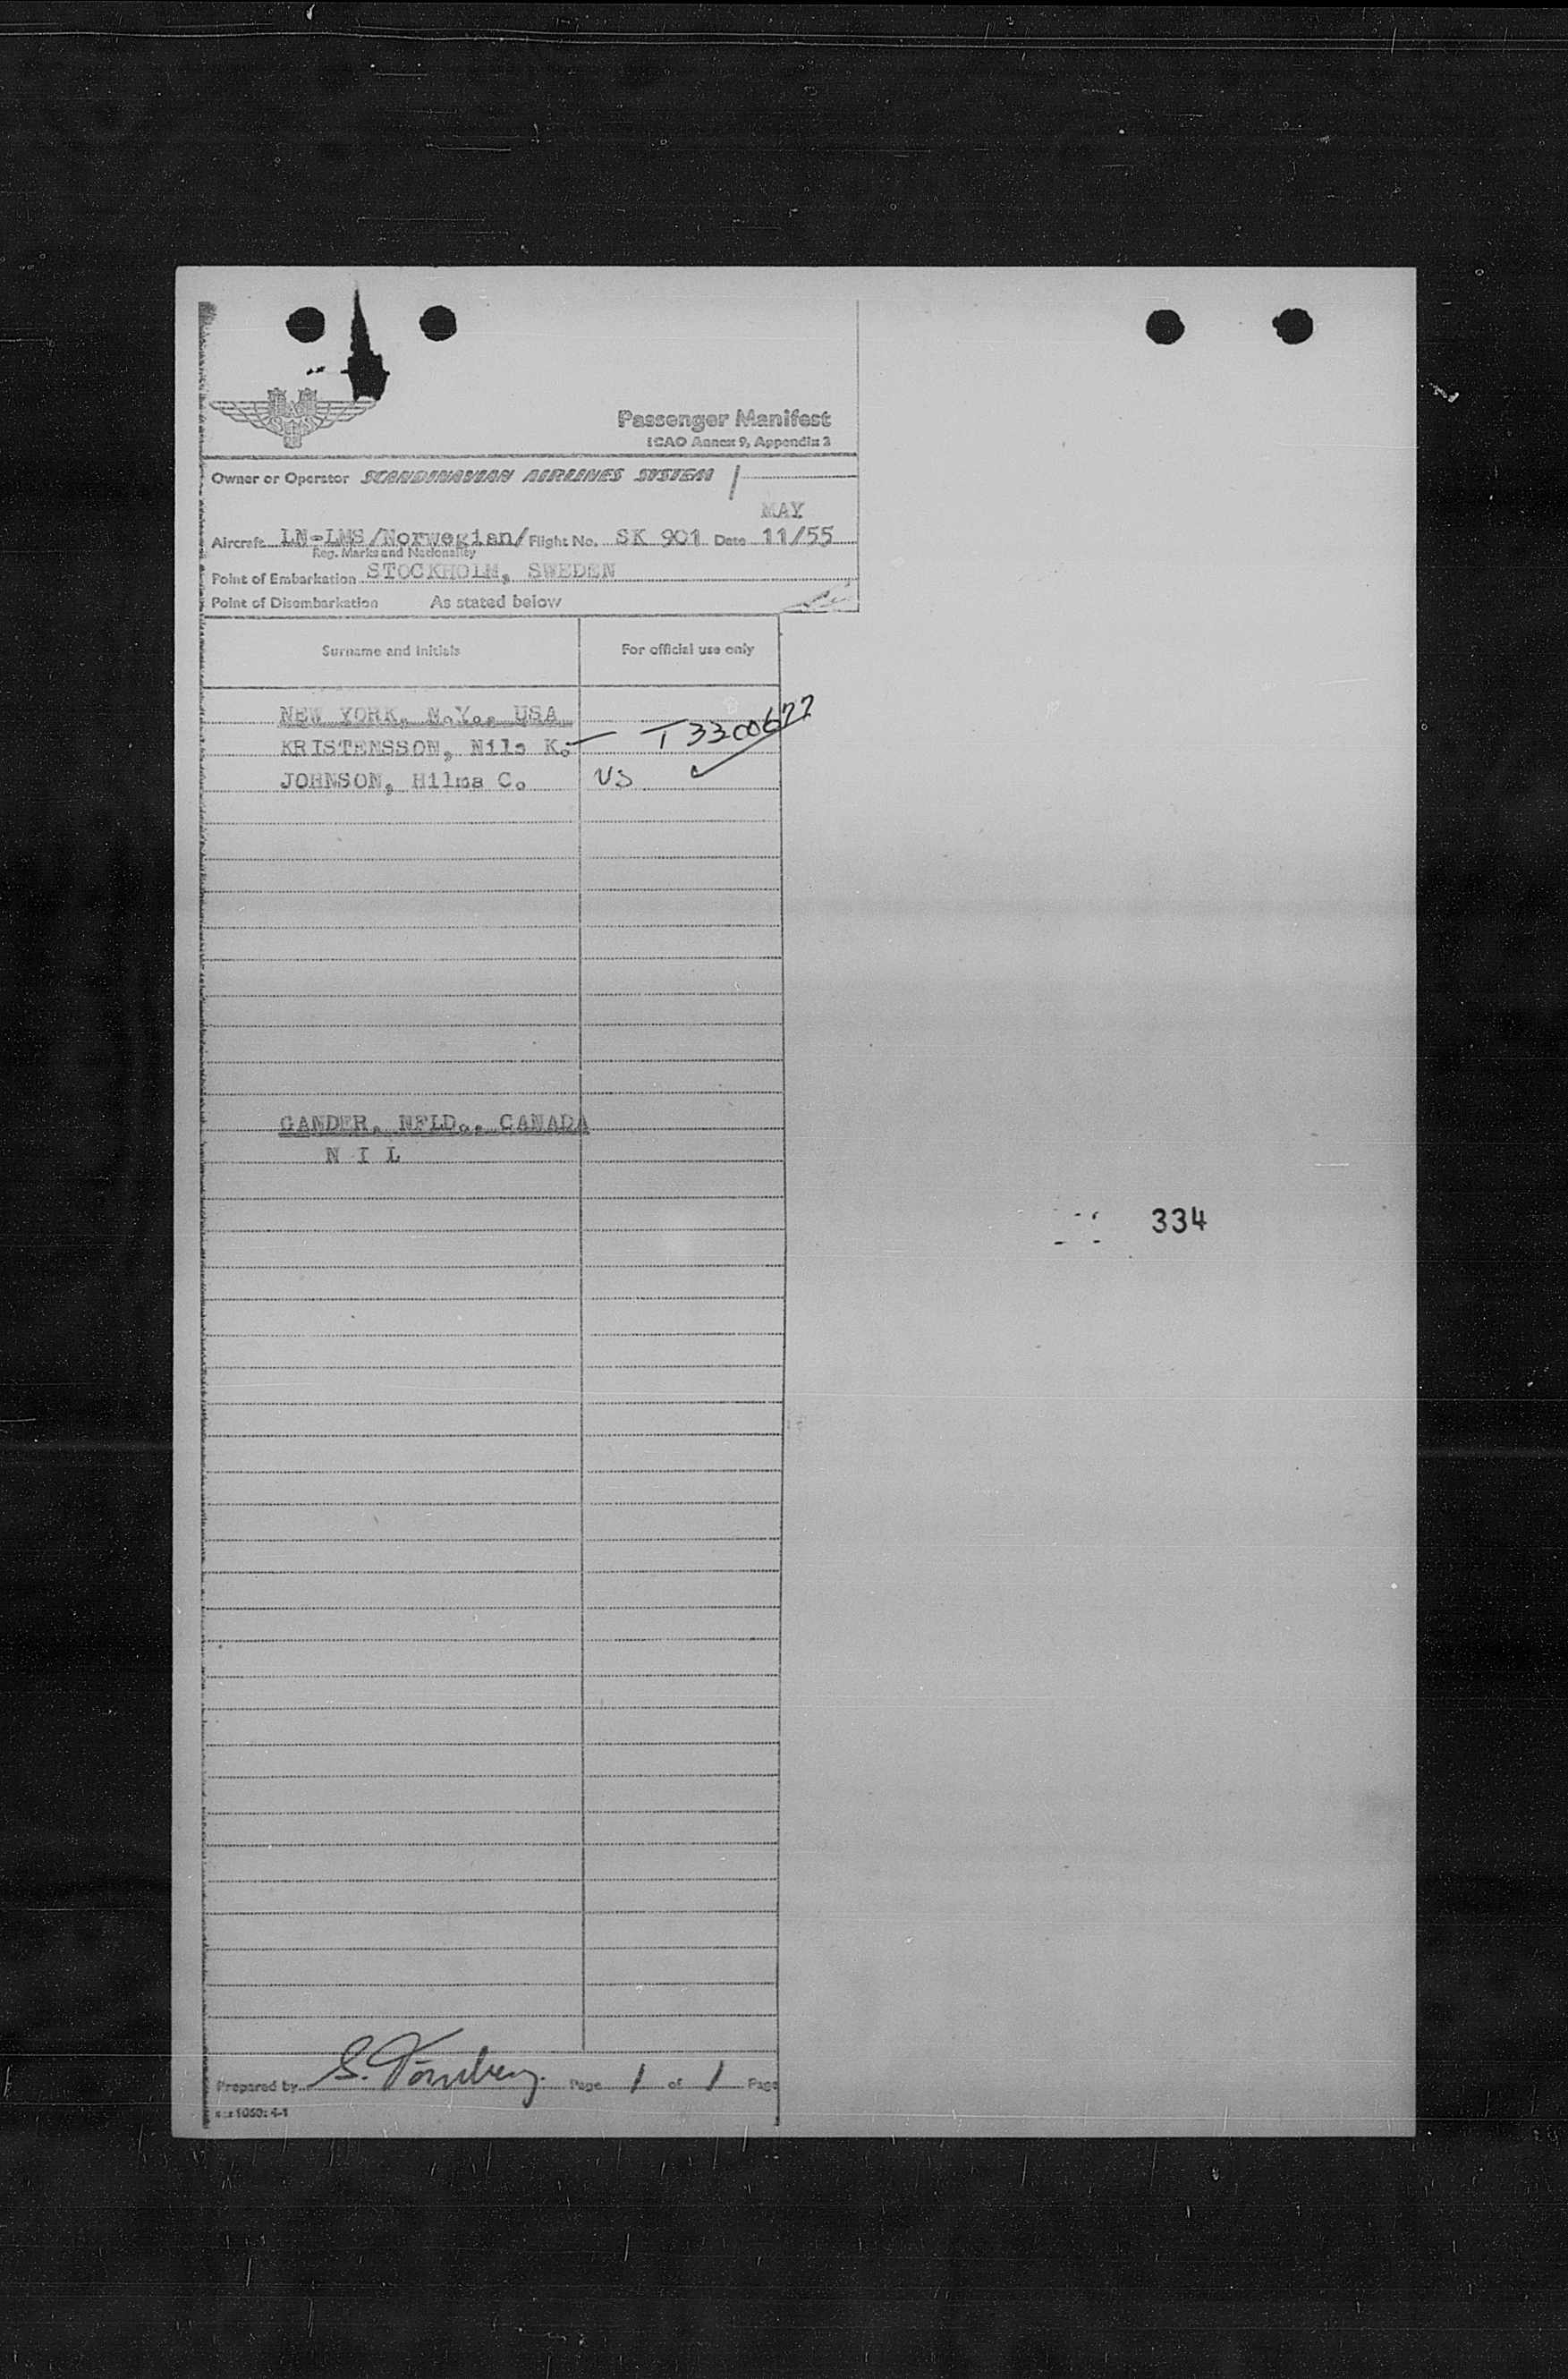 SAS
Passenger Manifest
ICAO Annex 9, Appendix 2
Owner or Operator SCANDINAVIAN AIRLINES SYSTEM /
MAY
Aircraft LN-LMS/Norwegian/ Flight No. SK 901 Date 11/55
Reg. Marks and Nationality
Point of Embarkation STOCKHOLM, SWEDEN
Point of Disembarkation As stated below
Surname and initials For official use only
NEW YORK, N.Y., USA
KRISTENSSON, Nils K. — T3300677
JOHNSON, Hilma C. US ✓
GANDER, NFLD., CANADA
N I L
334
Prepared by S. Törnberg. Page 1 of 1 Page